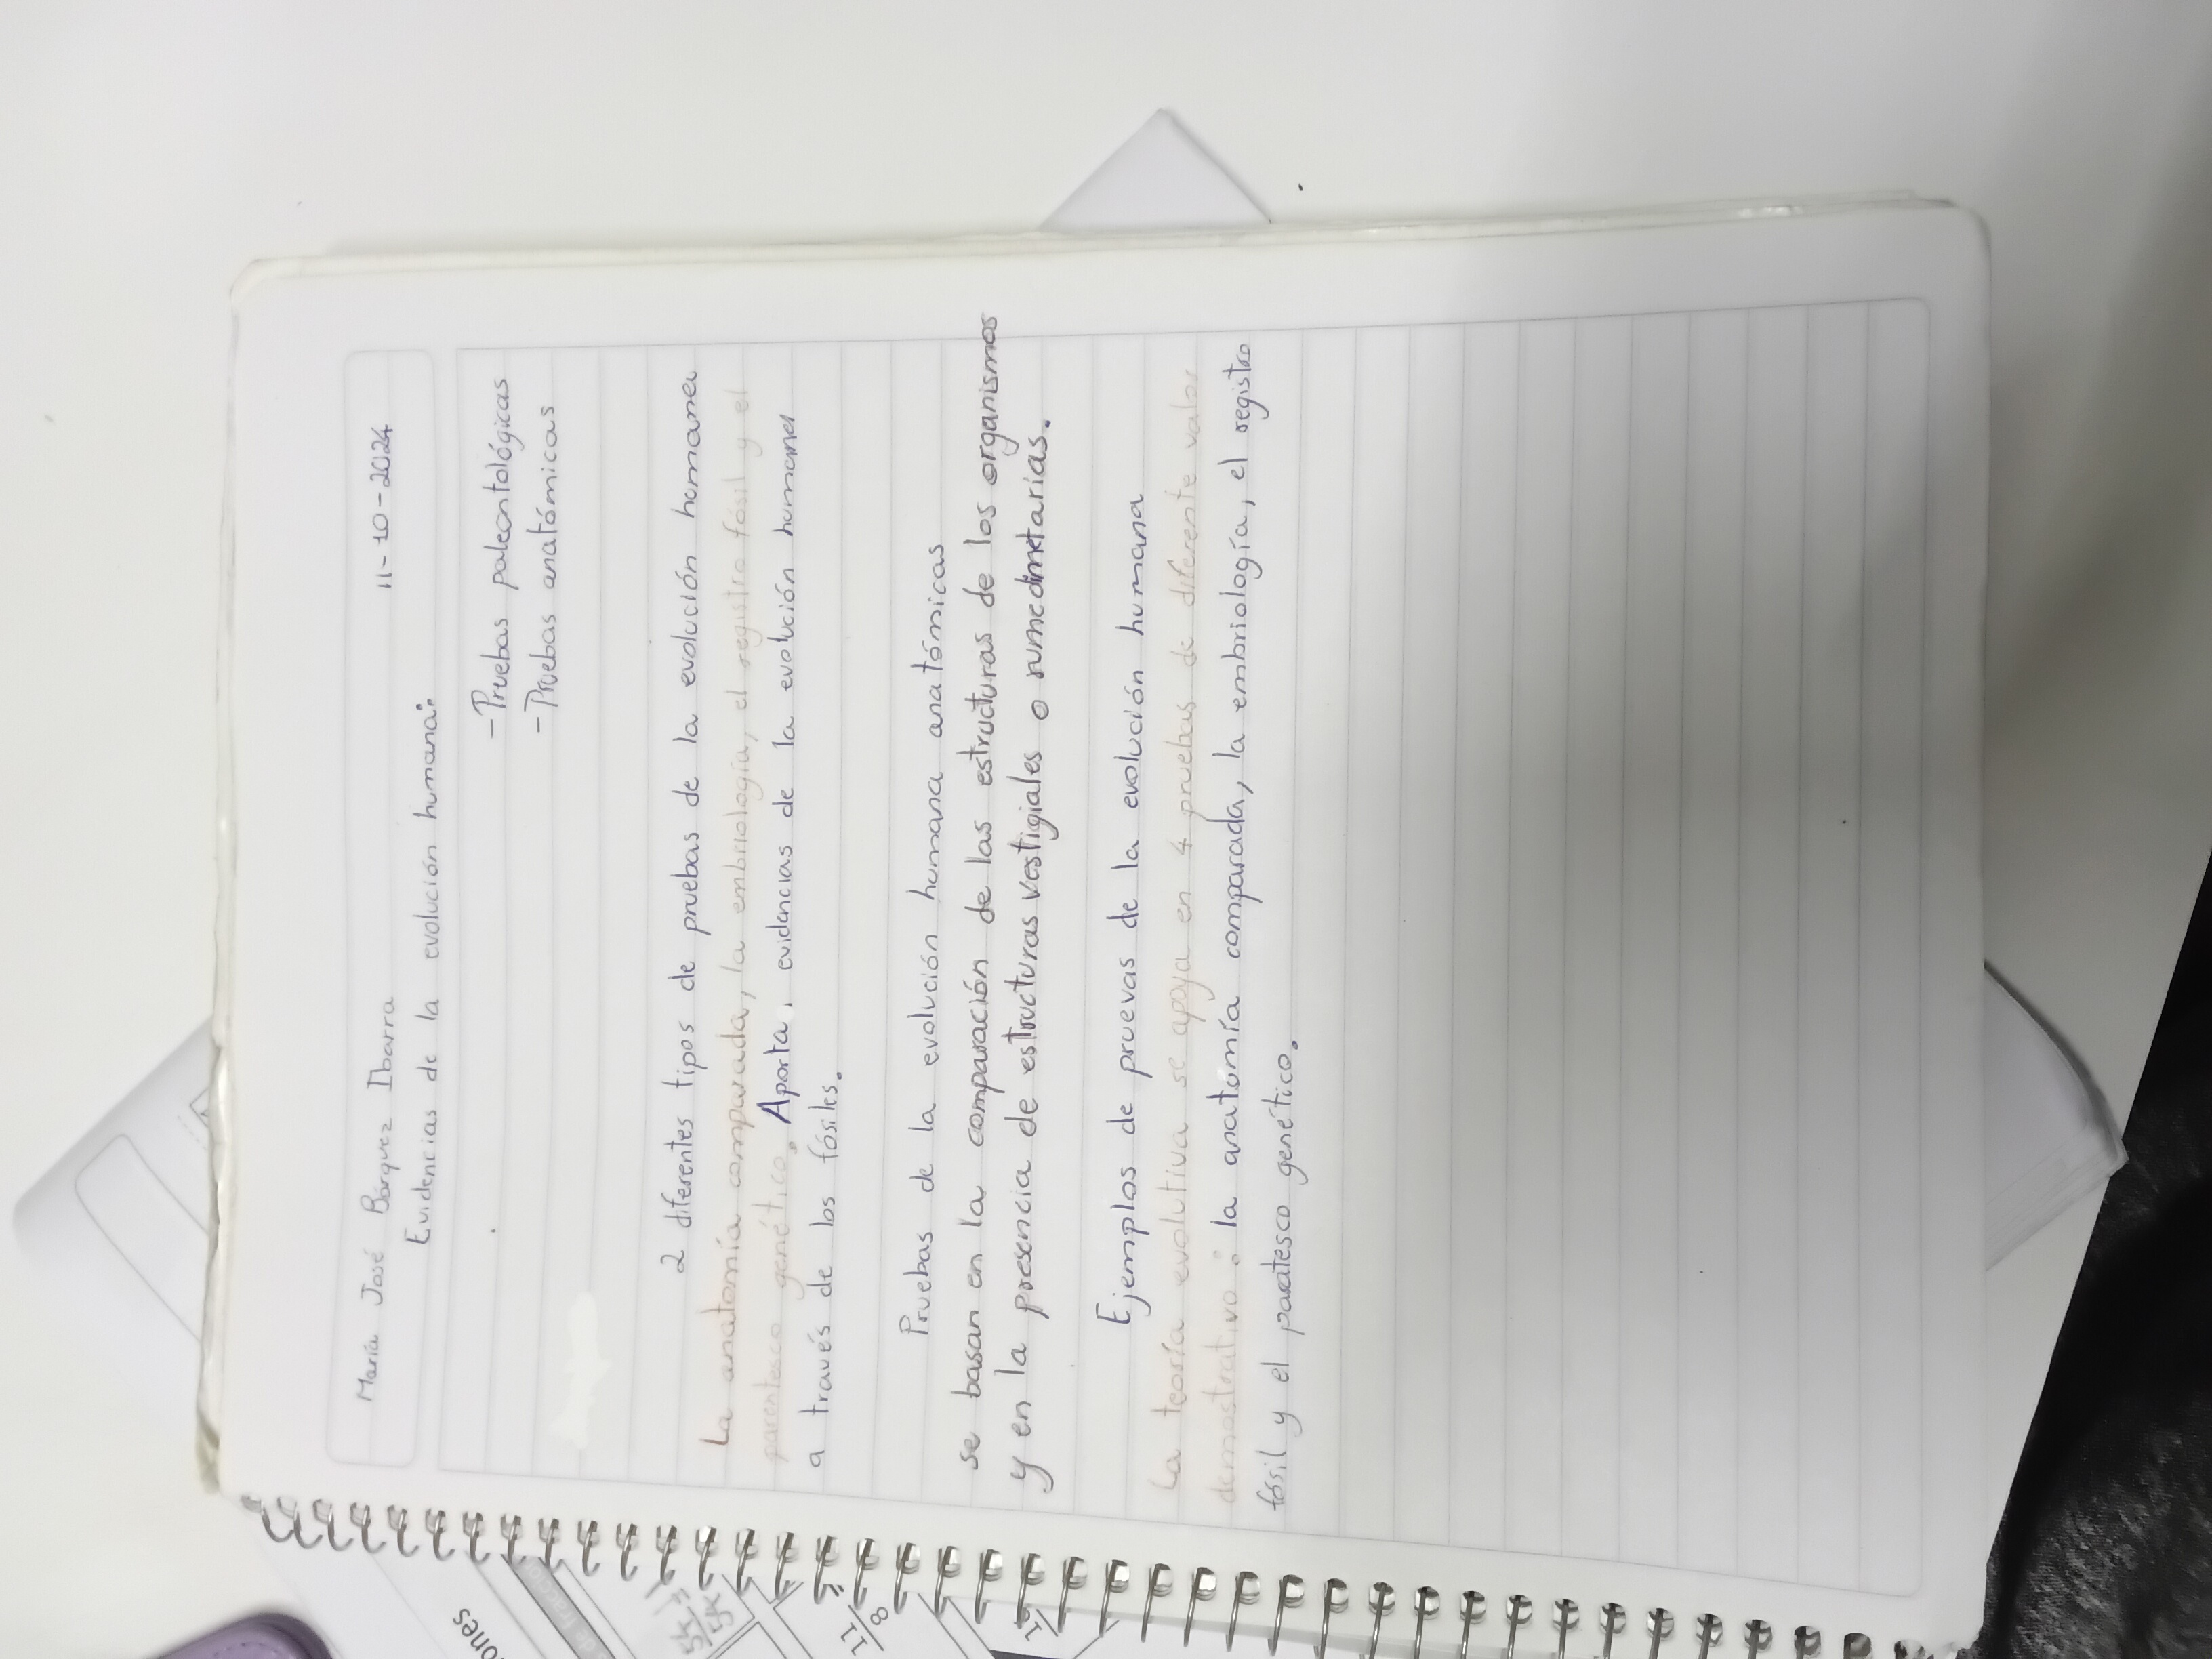 María José Bórquez Ibarra
11-10-2024
Evidencias de la evolución humana:
-Pruebas paleontológicas
-Pruebas anatómicas
2 diferentes tipos de pruebas de la evolución humana
La anatomía comparada, la embriología, el registro fósil y el
parentesco genético. Aporta, evidencias de la evolución humana
a través de los fósiles.
Pruebas de la evolución humana anatómicas
se basan en la comparación de las estructuras de los organismos
y en la presencia de estructuras vestigiales o rumedimetarias.
Ejemplos de pruevas de la evolución humana
La teoría evolutiva se apoya en 4 pruebas de diferente valor
demostrativo: la anatomía comparada, la embriología, el registro
fósil y el paratesco genético.
ones
11/8